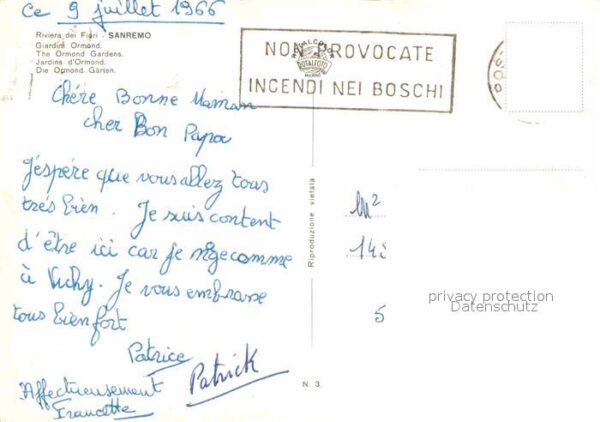 ce 9 juillet 1966
Riviera dei Fiori - SANREMO
Giardini Ormond.
The Ormond Gardens.
Jardins d'Ormond.
Die Ormond Gärten.
NON PROVOCATE
INCENDI NEI BOSCHI
Chère Bonne Maman
cher Bon Papa
J'espére que vous allez tous
trés bien. Je suis content
d'être ici car je nage comme
à Vichy. Je vous embrasse
tous bien fort
Patrice
Patrick
Affectueusement
Francette
Riproduzione vietata
N. 3
privacy protection
Datenschutz